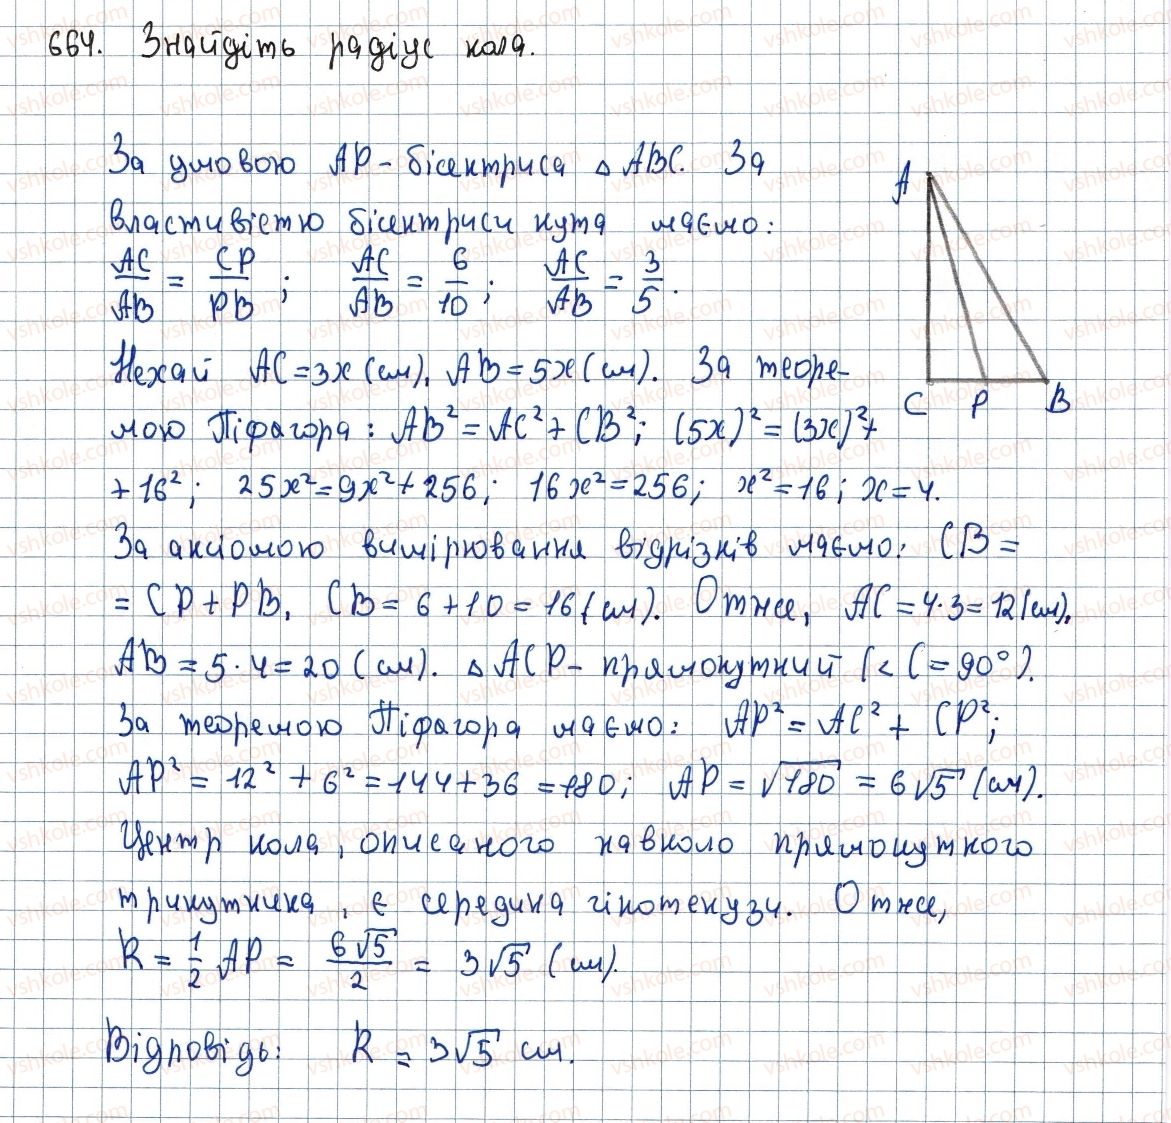 664. Знайдіть радіус кола.
За умовою AP - бісектриса △ ABC. За
властивістю бісектриси кута маємо:
AC/AB = CP/PB; AC/AB = 6/10; AC/AB = 3/5.
Нехай AC = 3x (см), AB = 5x (см). За теоре-
мою Піфагора: AB² = AC² + CB²; (5x)² = (3x)² +
+ 16²; 25x² = 9x² + 256; 16x² = 256; x² = 16; x = 4.
За аксіомою вимірювання відрізків маємо: CB =
= CP + PB, CB = 6 + 10 = 16 (см). Отже, AC = 4·3 = 12 (см),
AB = 5·4 = 20 (см). △ ACP - прямокутний (∠C = 90°).
За теоремою Піфагора маємо: AP² = AC² + CP²;
AP² = 12² + 6² = 144 + 36 = 180; AP = √180 = 6√5 (см).
Центр кола, описаного навколо прямокутного
трикутника, є середина гіпотенузи. Отже,
R = 1/2 AP = 6√5/2 = 3√5 (см).
Відповідь: R = 3√5 см.
A
C P B
vshkole.com